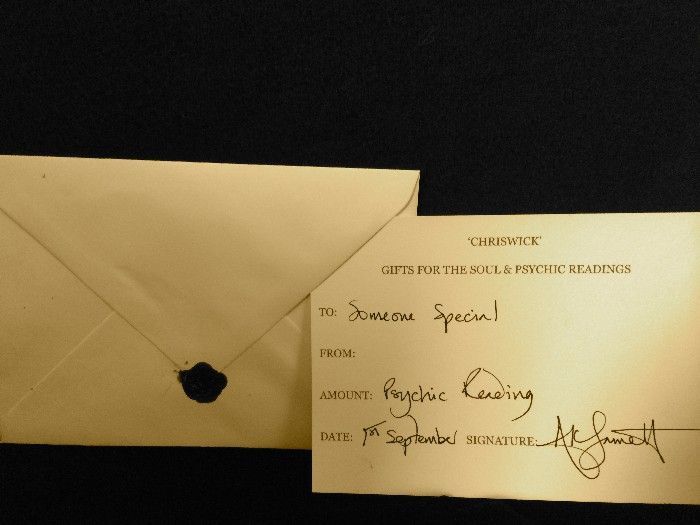 'CHRISWICK'
GIFTS FOR THE SOUL & PSYCHIC READINGS
TO: Someone Special
FROM:
AMOUNT: Psychic Reading
DATE: 1st September SIGNATURE: